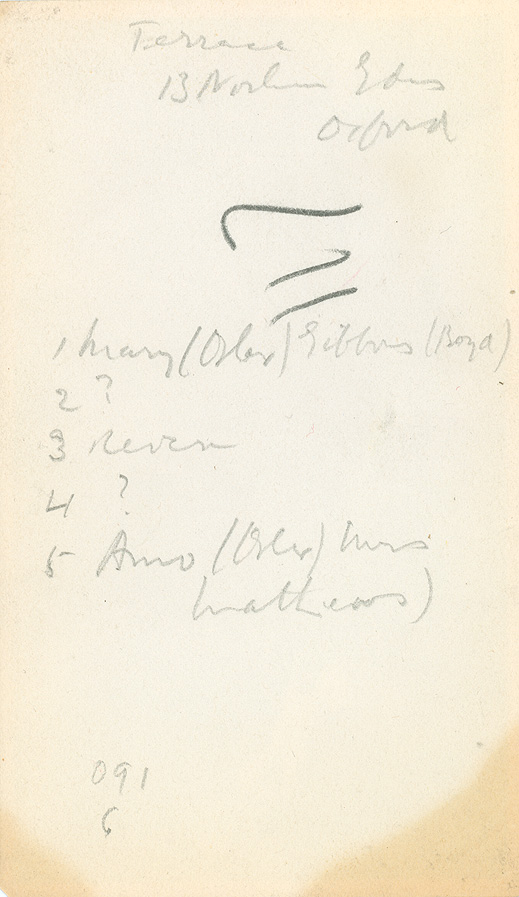 Terrace
13 Norham Gdns
Oxford
1 Mary (Osler) Gibbons (Boyd)
2 ?
3 Revere
4 ?
5 (Osler) Mrs
Mathews)
091
6